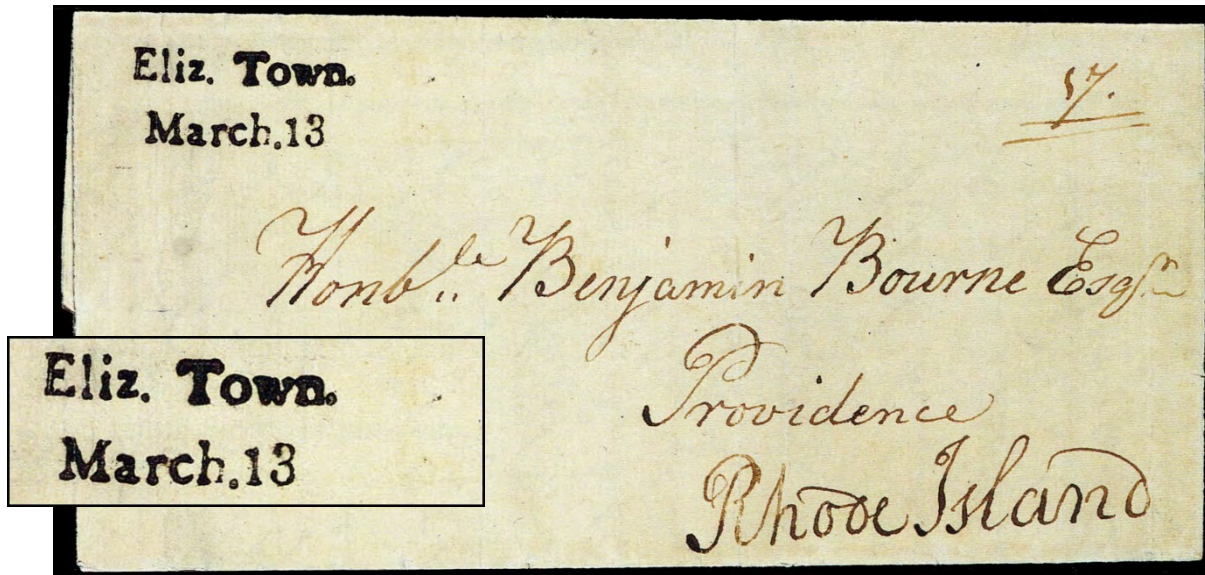 Eliz. Town.
March.13
17.
Honble. Benjamin Bourne Esqr
Providence
Rhode Island
Eliz. Town.
March.13